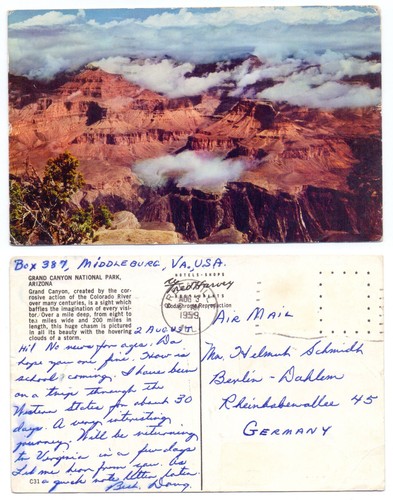 Box 387, Middleburg, Va, USA.
GRAND CANYON NATIONAL PARK,
ARIZONA
Grand Canyon, created by the cor-
rosive action of the Colorado River
over many centuries, is a sight which
baffles the imagination of every visi-
tor. Over a mile deep, from eight to
ten miles wide and 200 miles in
length, this huge chasm is pictured
in all its beauty with the hovering
clouds of a storm.
2 August
Hi! No news for ages. Do
hope you are fine. How is
school coming. I have been
on a trip through the
Western States for about 30
days. A very intresting
journey. Will be returning
to Virginia in a few days
Let me hear from you. As
a quick note letter later.
Best, Doug.
C31
HOTELS-SHOPS
Fred Harvey
RESTAURANTS
Reproduction
AUG 3
PM
1959
AIR MAIL
Mr. Helmut Schmidt
Berlin-Dahlem
Rheinbabenallee 45
GERMANY